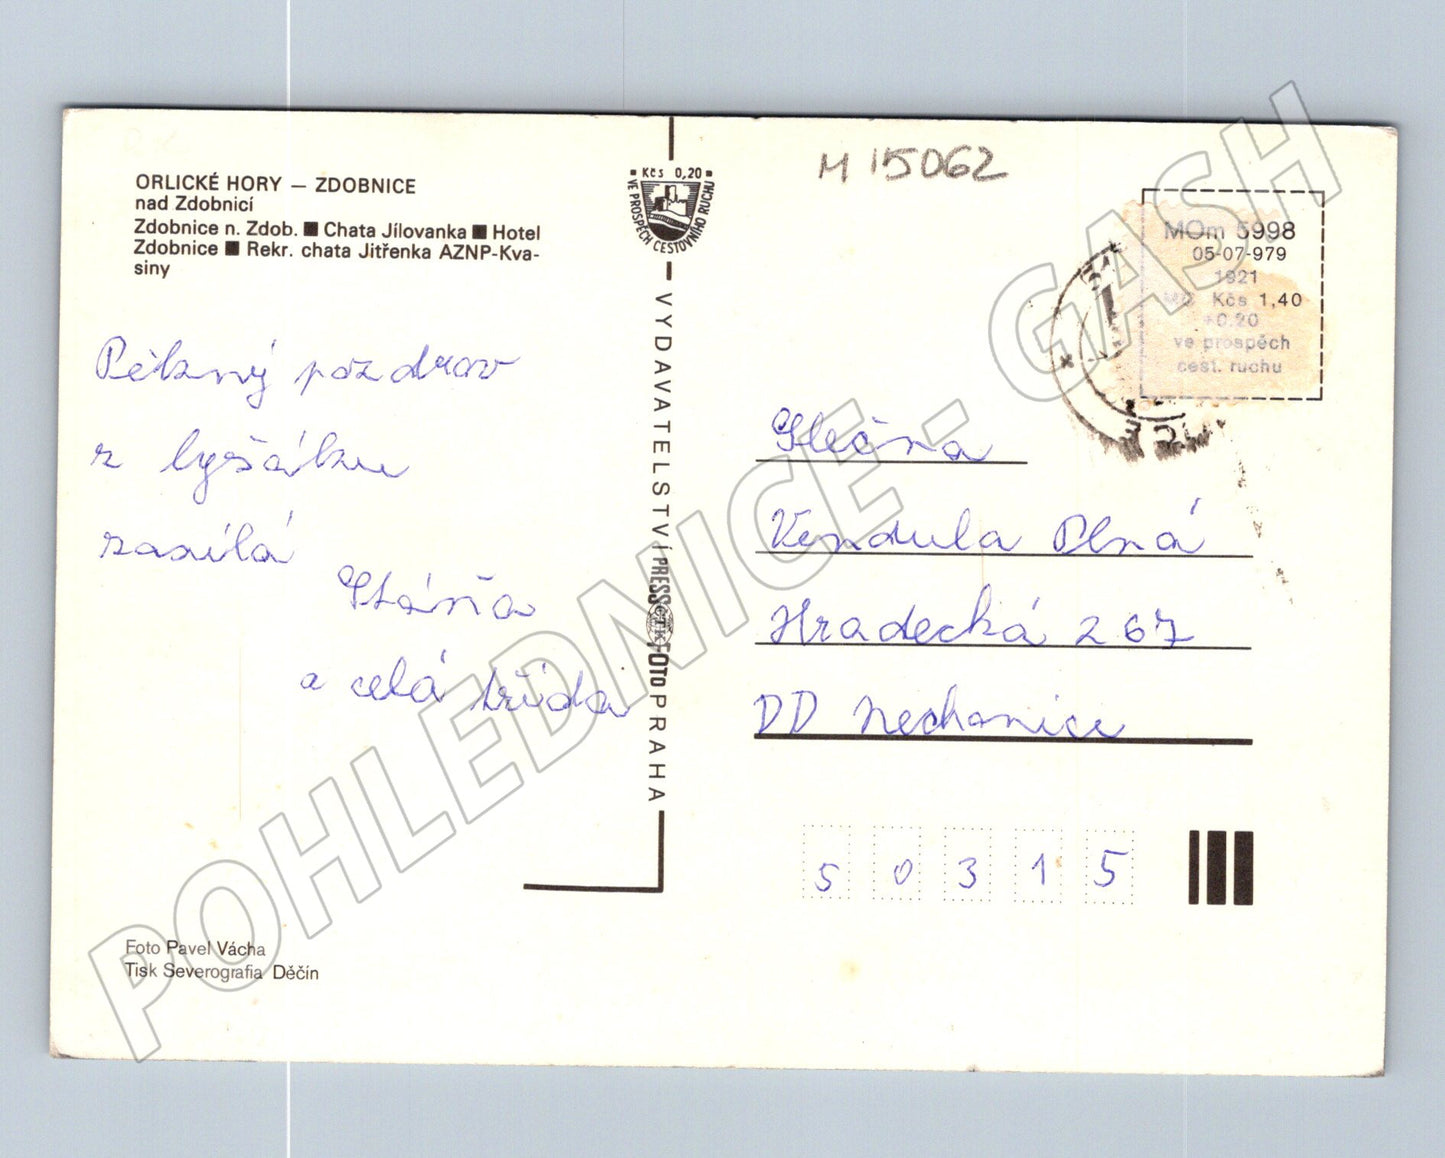 ORLICKÉ HORY – ZDOBNICE
nad Zdobnicí
Zdobnice n. Zdob. ■ Chata Jílovanka ■ Hotel
Zdobnice ■ Rekr. chata Jitřenka AZNP-Kva-
siny
Pěkný pozdrav
z lyšáku
zasílá
Stáňa
a celá třída
Foto Pavel Vácha
Tisk Severografia Děčín
Kčs 0,20
VE PROSPĚCH CESTOVNÍHO RUCHU
VYDAVATELSTVÍ PRESSFOTO PRAHA
ČTK
M 15062
MOm 5998
05-07-979
1921
MO Kčs 1,40
+0.20
ve prospěch
cest. ruchu
Slečna
Vendula Plná
Hradecká 267
DD Nechanice
50315
POHLEDNICE - GASH